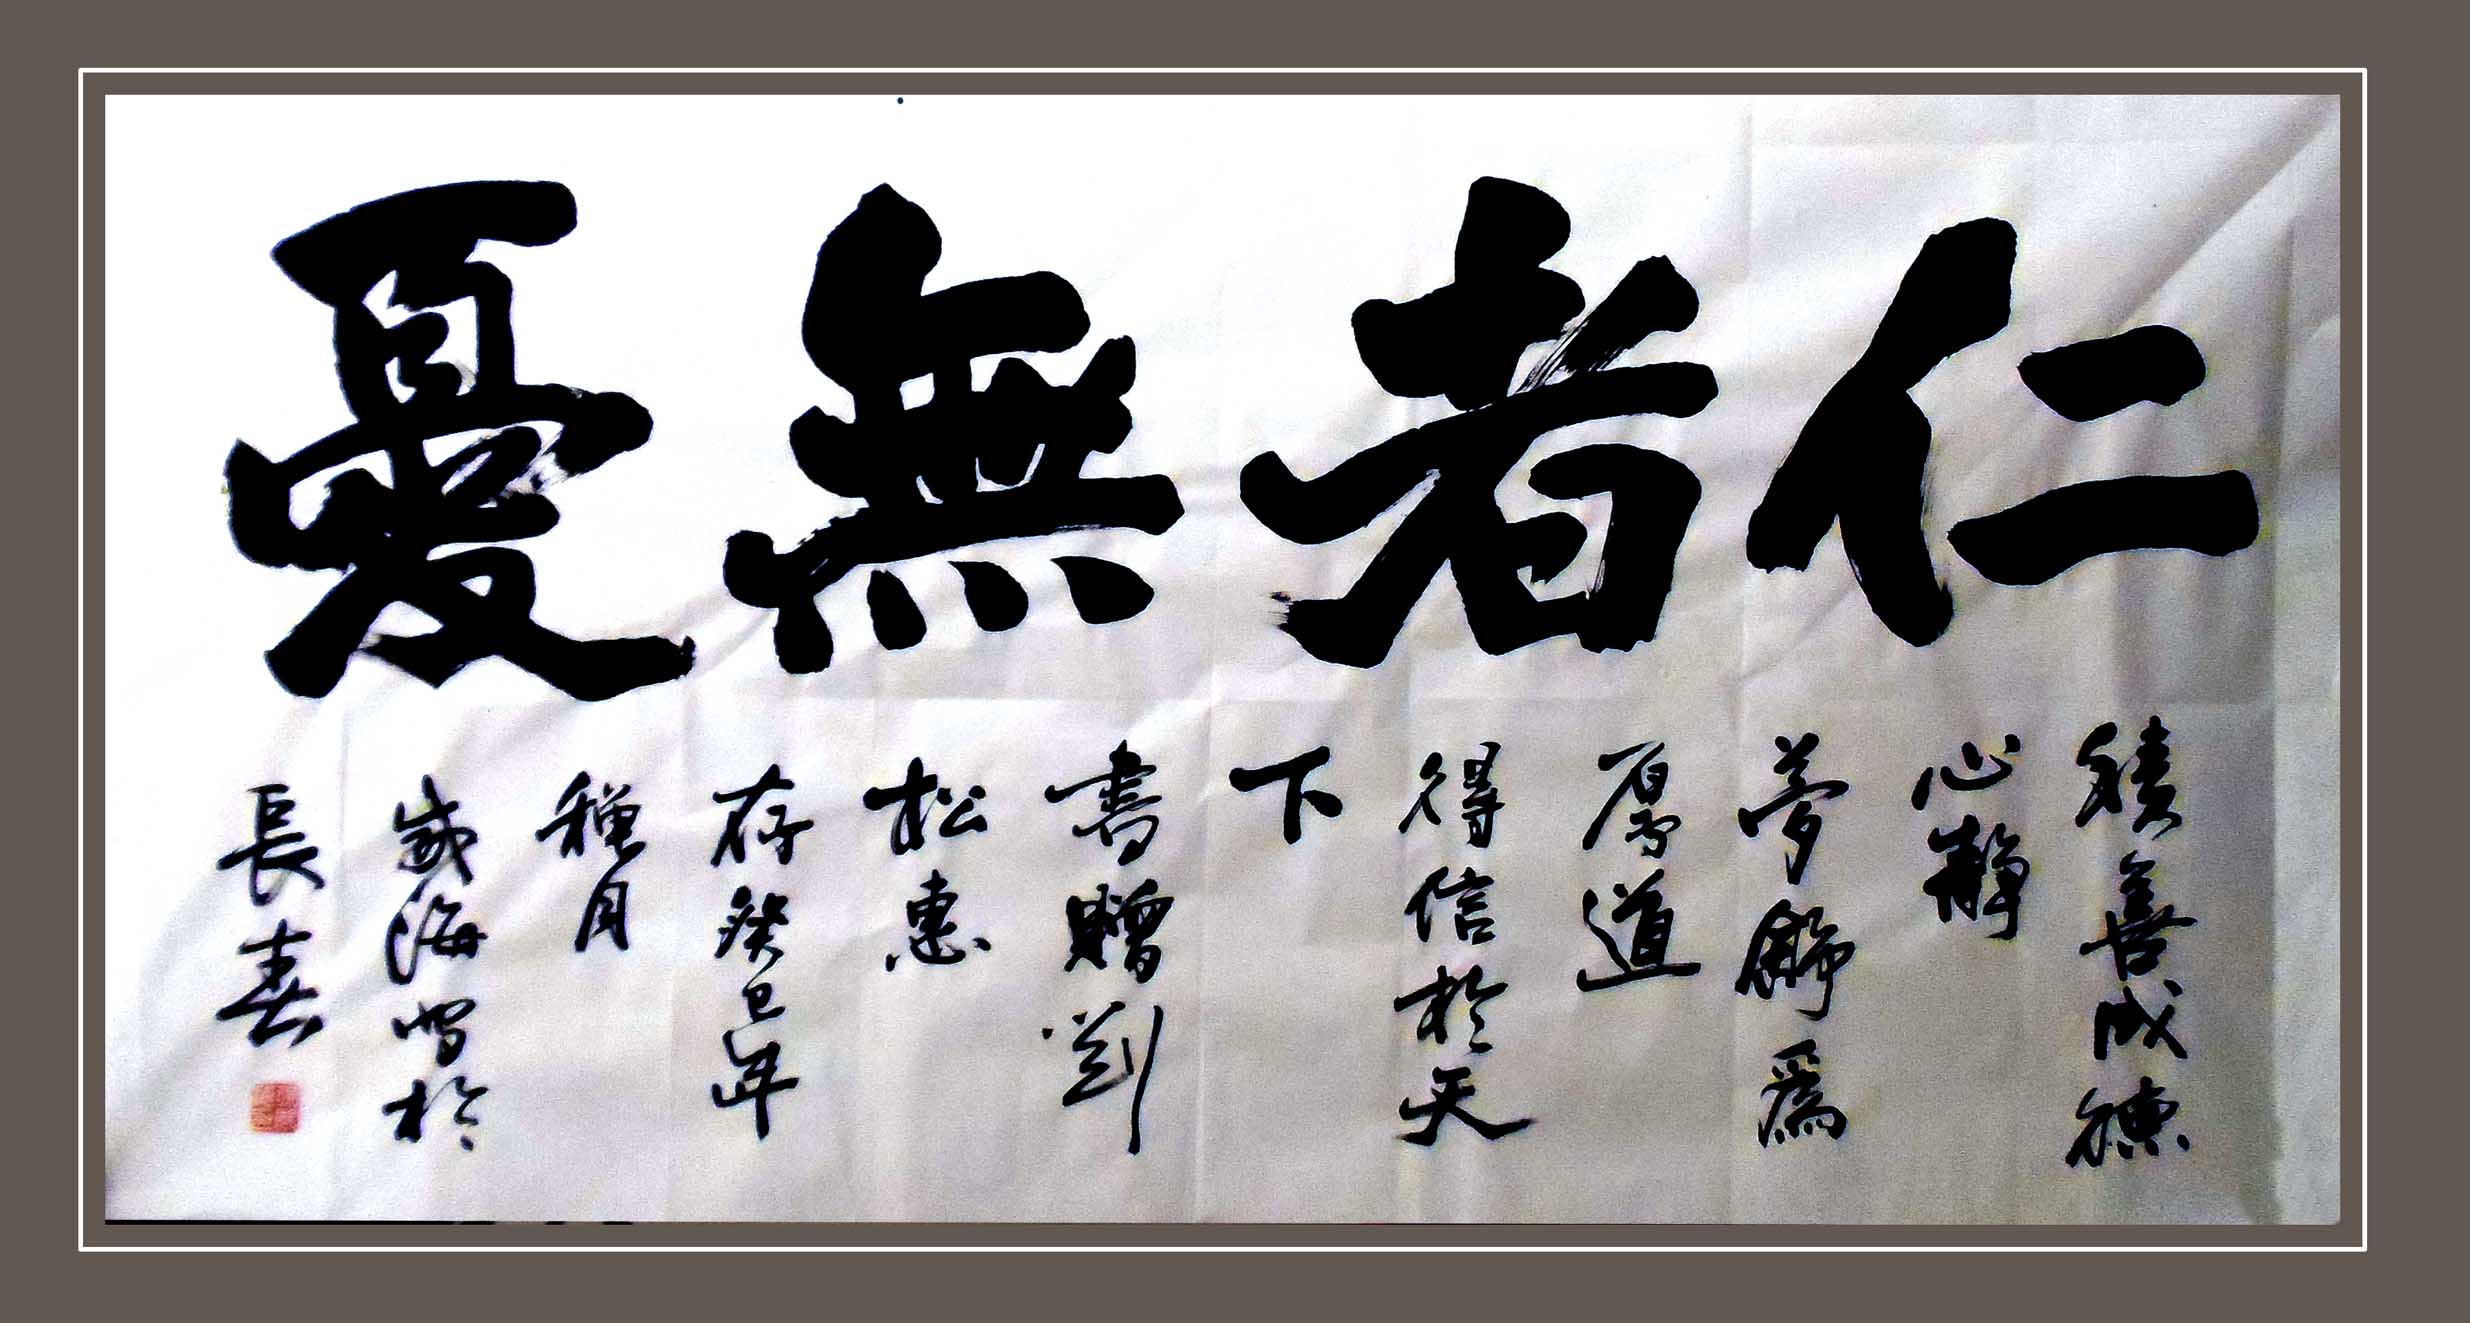 仁者無憂
積善成德
心靜
夢歸為
厚道
得信於天
下
書贈劉
松惠
存癸巳年
種月
歲海書於
長春